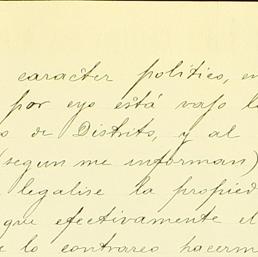 caracter politico, en
por ejo está vajo l
de Distrito, y al
(segun me informan)
legalise la propied
que efectivamente el
lo contrareo hacerm